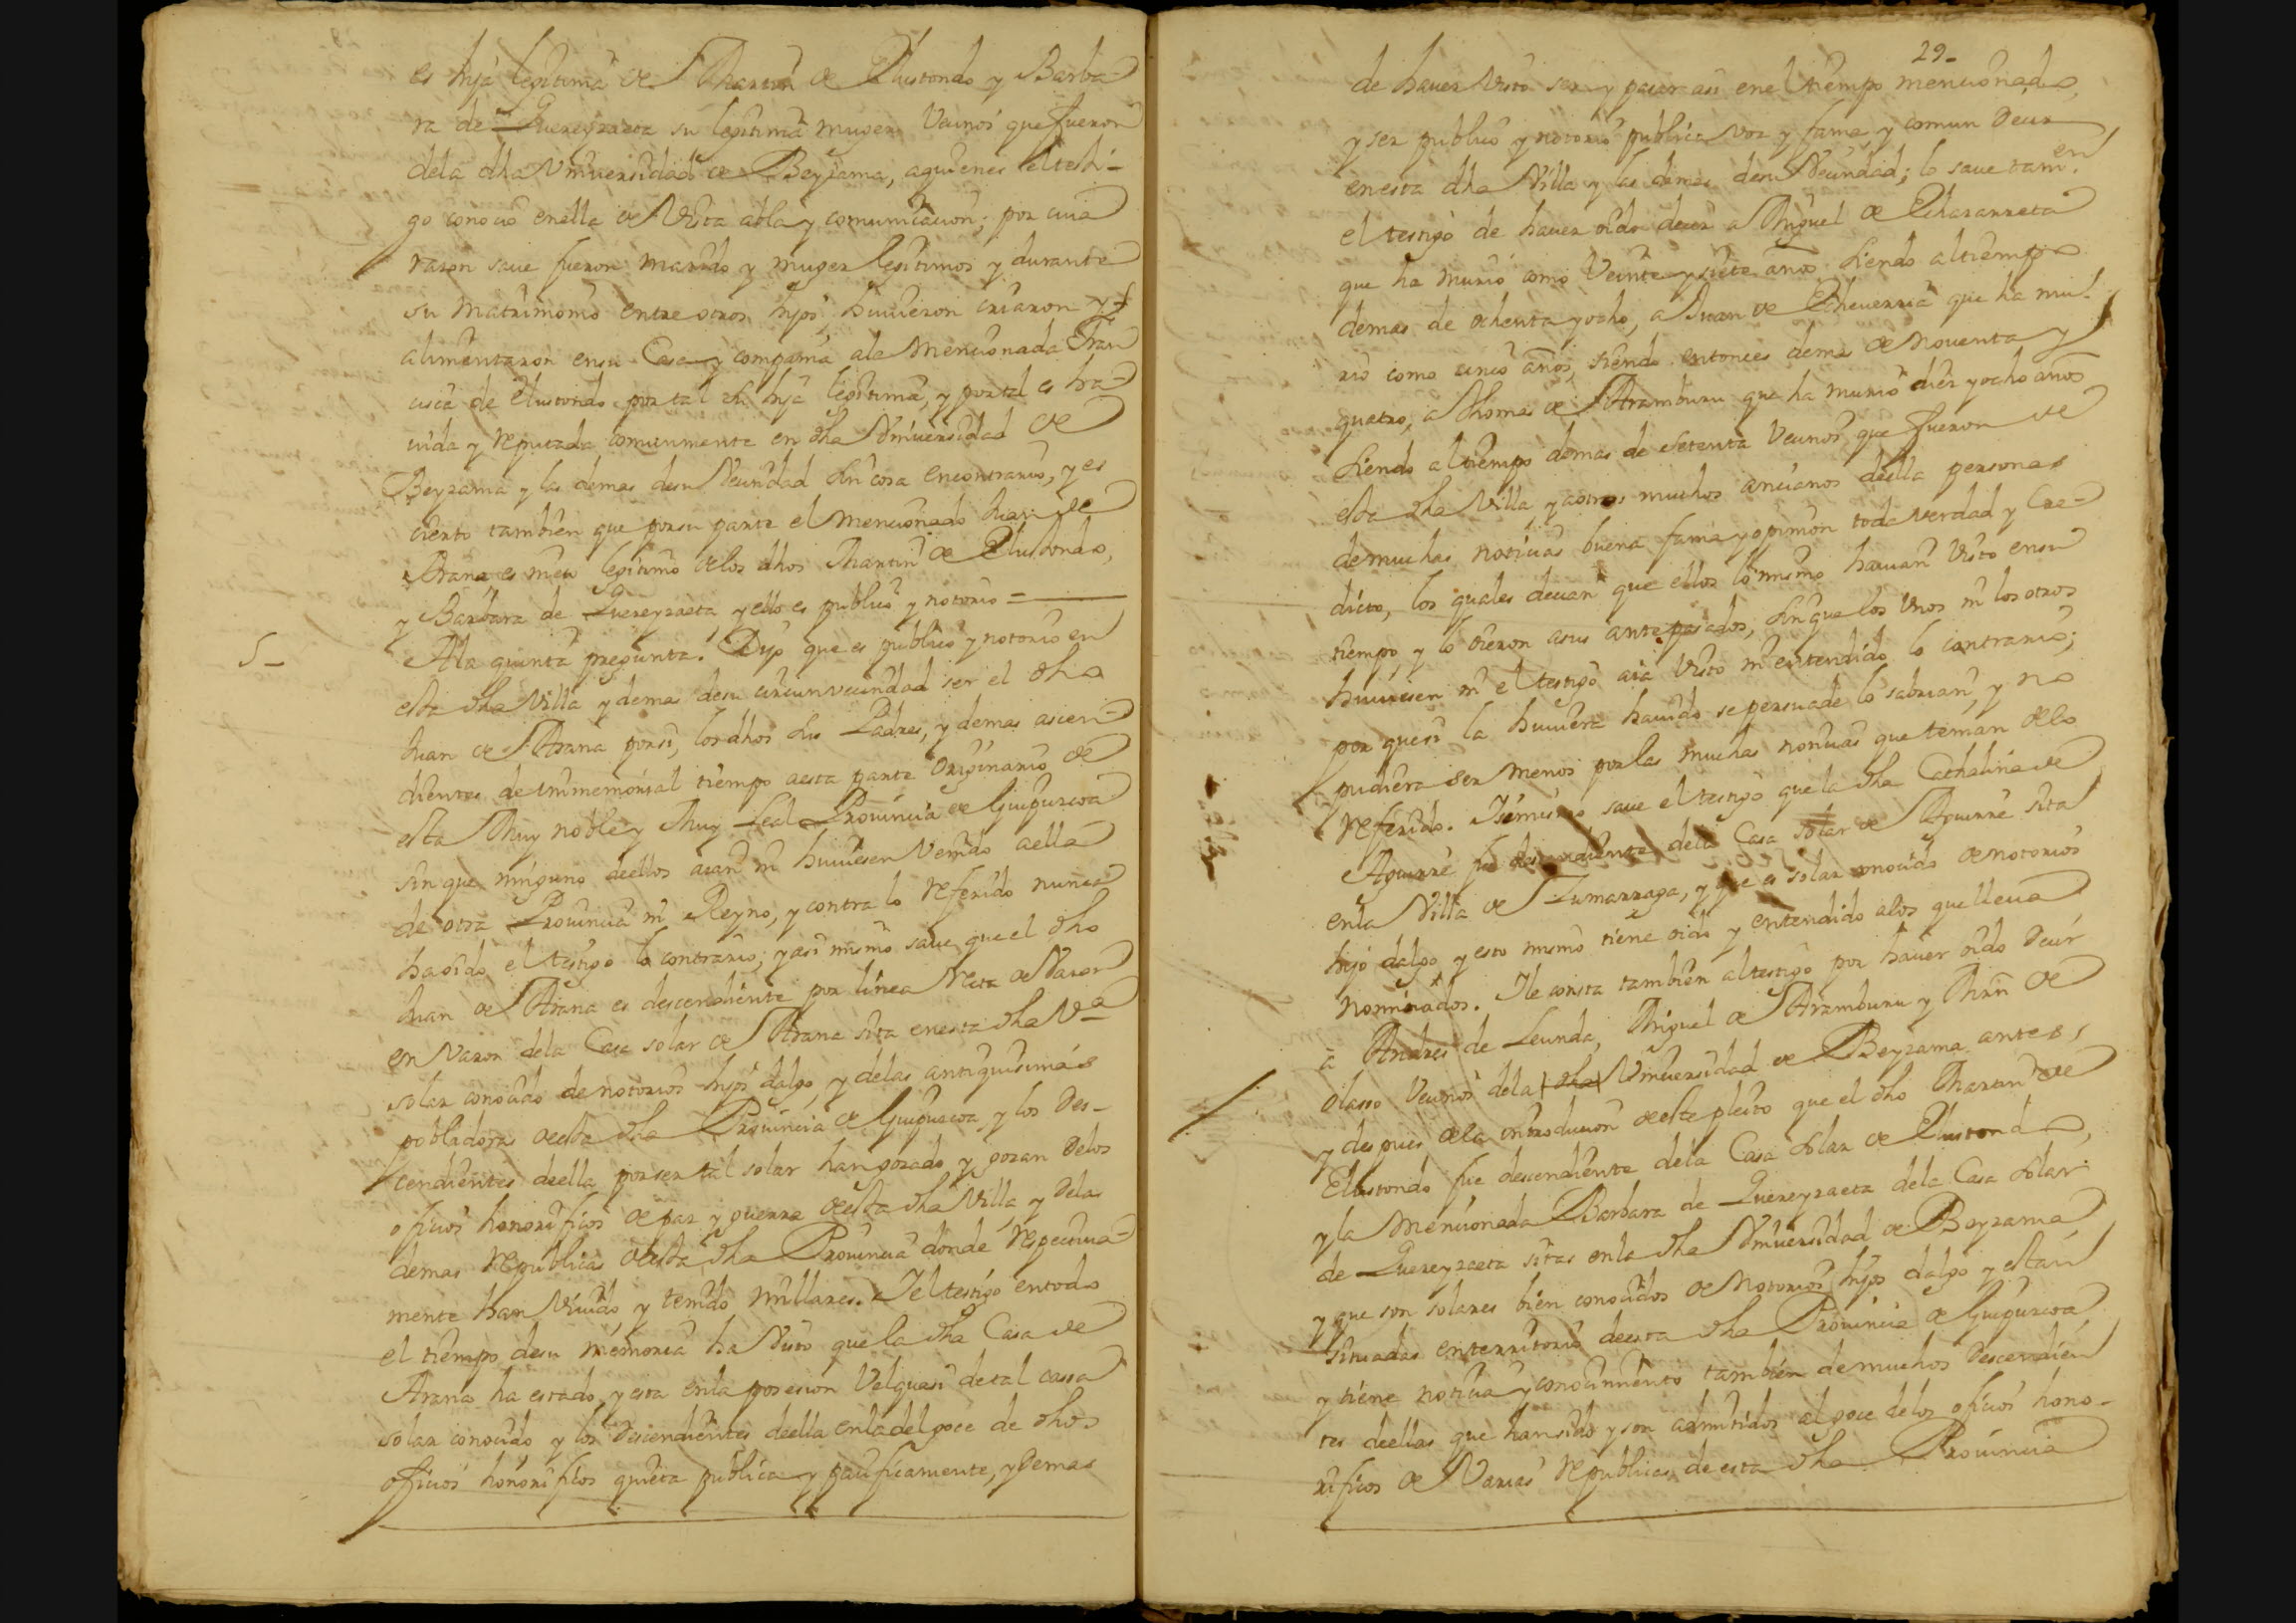 es hija legitima de Martin de Elustondo y Barba-
ra de Quereyzaeta su legitima muger Vecinos que fueron
dela dha Vniversidad de Beyzama, aquienes el testi-
go conocio enella de Vista abla y comunicacion; por cuia
razon saue fueron marido y muger legitimos y durante
su matrimonio entre otros hijos huuieron criaron y
alimentaron ensu Casa y compania ala Mencionada Fran
cisca de Elustondo por tal su hija legitima, y por tal es ha-
uida y reputada comunmente en dha Vniuersidad de
Beyzama y las demas desu Vecindad sin cosa encontrario, y es
cierto tambien que porsu parte el Mencionado Juan de
Arana es nieto legitimo delos dhos Martin de Elustondo,
y Barbara de Quereyzaeta, y ello es publico y notorio =
5- Ala quinta pregunta. Dijo que es publico y notorio en
esta dha Villa y demas desu circunvecindad ser el dho
Juan de Arana porsi, los dhos sus Padres, y demas ascen-
dientes de immemorial tiempo aesta parte Originario de
esta Muy noble y Muy Leal Prouincia de Guipuzcoa
sin que ninguno deellos aian ni huuiesen Venido aella
de otra Prouincia ni Reyno, y contra lo referido nunca
ha oido el testigo lo contrario; y asi mismo saue que el dho
Juan de Arana es descendiente por linea Recta de Varon
en Varon dela Casa solar de Arana sita enesta dha Va
solar conocido de notorios hijos dalgo, y delas antiquisimas
pobladoras deesta dha Prouincia de Guipuzcoa, y los Des-
cendientes deella por ser tal solar han gozado y gozan Delos
oficios honorificos de paz y guerra deesta dha Villa y Delas
demas republicas deesta dha Prouincia donde respectiua-
mente han Viuido, y tenido millares. Y el testigo entodo
el tiempo desu memoria ha Visto que la dha Casa de
Arana ha estado, y esta enla posesion Velquasi detal cassa
solar conocido y los Descendientes deella enladel goce de dhos
oficios honorificos quieta publica y pacificamente, y Demas
29-
de hauer Visto ser y pasar asi enel tiempo mencionado,
y ser publico y notorio publica voz y fama, y comun Decir
enesta dha Villa y las demas desu Vecindad; lo saue tamen
el testigo de hauer oido decir a Miguel de Echazarreta
que ha murio como Veinte y siete años siendo altiempo
demas de ochenta y ocho, a Juan de Echeuerria que ha mu-
rio como cinco años, siendo entonces demas de Nouenta y
quatro, a Thomas de Aramburu que ha murio diez y ocho años
siendo altiempo demas de setenta Vecinos que fueron de
esta dha Villa y aotros muchos ancianos deella personas
demuchas noticias buena fama y opinion toda verdad y Cre-
dito, los quales decian que ellos lo mismo hauian Visto ensu
tiempo, y lo oieron asus antepasados, sinque los Vnos ni los otros
huuiesen ni el testigo aia Visto ni entendido lo contrario;
por quesi la huuiera hauido se persuade lo sabrian, y no
pudiera ser menos por las muchas noticias que tenian delo
referido. Isimismo saue el testigo que la dha Cathalina de
Aguirre fue descendiente dela Casa solar de Aguirre sita
enla Villa de Zumarraga, y que es solar conocido de notorios
hijos dalgo y esto mismo tiene oido y entendido alos que lleua
nominados. Ile consta tambien al testigo por hauer oido Decir
a Andres de Leunda, Miguel de Aramburu y Mrn de
Olasso Vecinos dela dha Vniuersidad de Beyzama antes,
y despues dela introducion deeste pleito que el dho Martin de
Ellustondo fue descendiente dela Casa solar de Elustondo,
y la Mencionada Barbara de Quereyzaeta dela Casa solar
de Quereyzaeta sitas enla dha Vniuersidad de Beyzama
y que son solares bien conocidos de Notorios hijos dalgo y estan
situadas enterritorio deesta dha Prouincia de Guipuzcoa,
y tiene noticia y conocimiento tambien demuchos Descendien
tes deellas que han sido y son admitidos al goce delos oficios hono-
rificos de Varias republicas de esta dha Prouincia